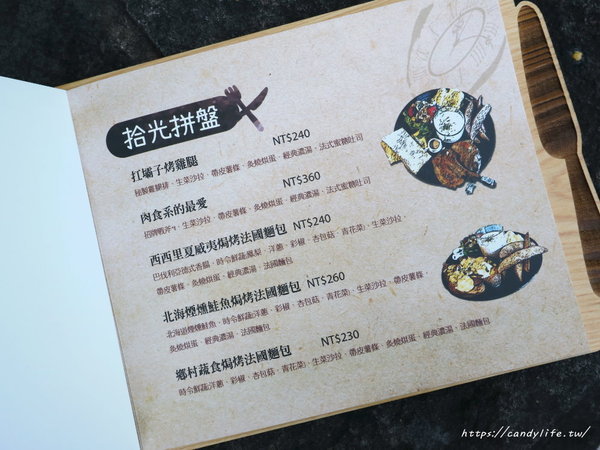 拾光拼盤
扛壩子烤雞腿 NT$240
極製雞腿排、生菜沙拉、帶皮薯條、炙燒烘蛋、經典濃湯、法式蜜糖吐司
肉食系的最愛 NT$360
招牌戰斧、生菜沙拉、帶皮薯條、炙燒烘蛋、經典濃湯、法式蜜糖吐司
西西里夏威夷焗烤法國麵包 NT$240
巴伐利亞德式香腸、時令鮮蔬(鳳梨、洋蔥、彩椒、杏包菇、青花菜)、生菜沙拉、
帶皮薯條、炙燒烘蛋、經典濃湯、法國麵包
北海煙燻鮭魚焗烤法國麵包 NT$260
北海道煙燻鮭魚、時令鮮蔬(洋蔥、彩椒、杏包菇、青花菜)、生菜沙拉、帶皮薯條、
炙燒烘蛋、經典濃湯、法國麵包
鄉村蔬食焗烤法國麵包 NT$230
時令鮮蔬(洋蔥、彩椒、杏包菇、青花菜)、生菜沙拉、帶皮薯條、炙燒烘蛋、經典濃湯、法國麵包
https://candylife.tw/